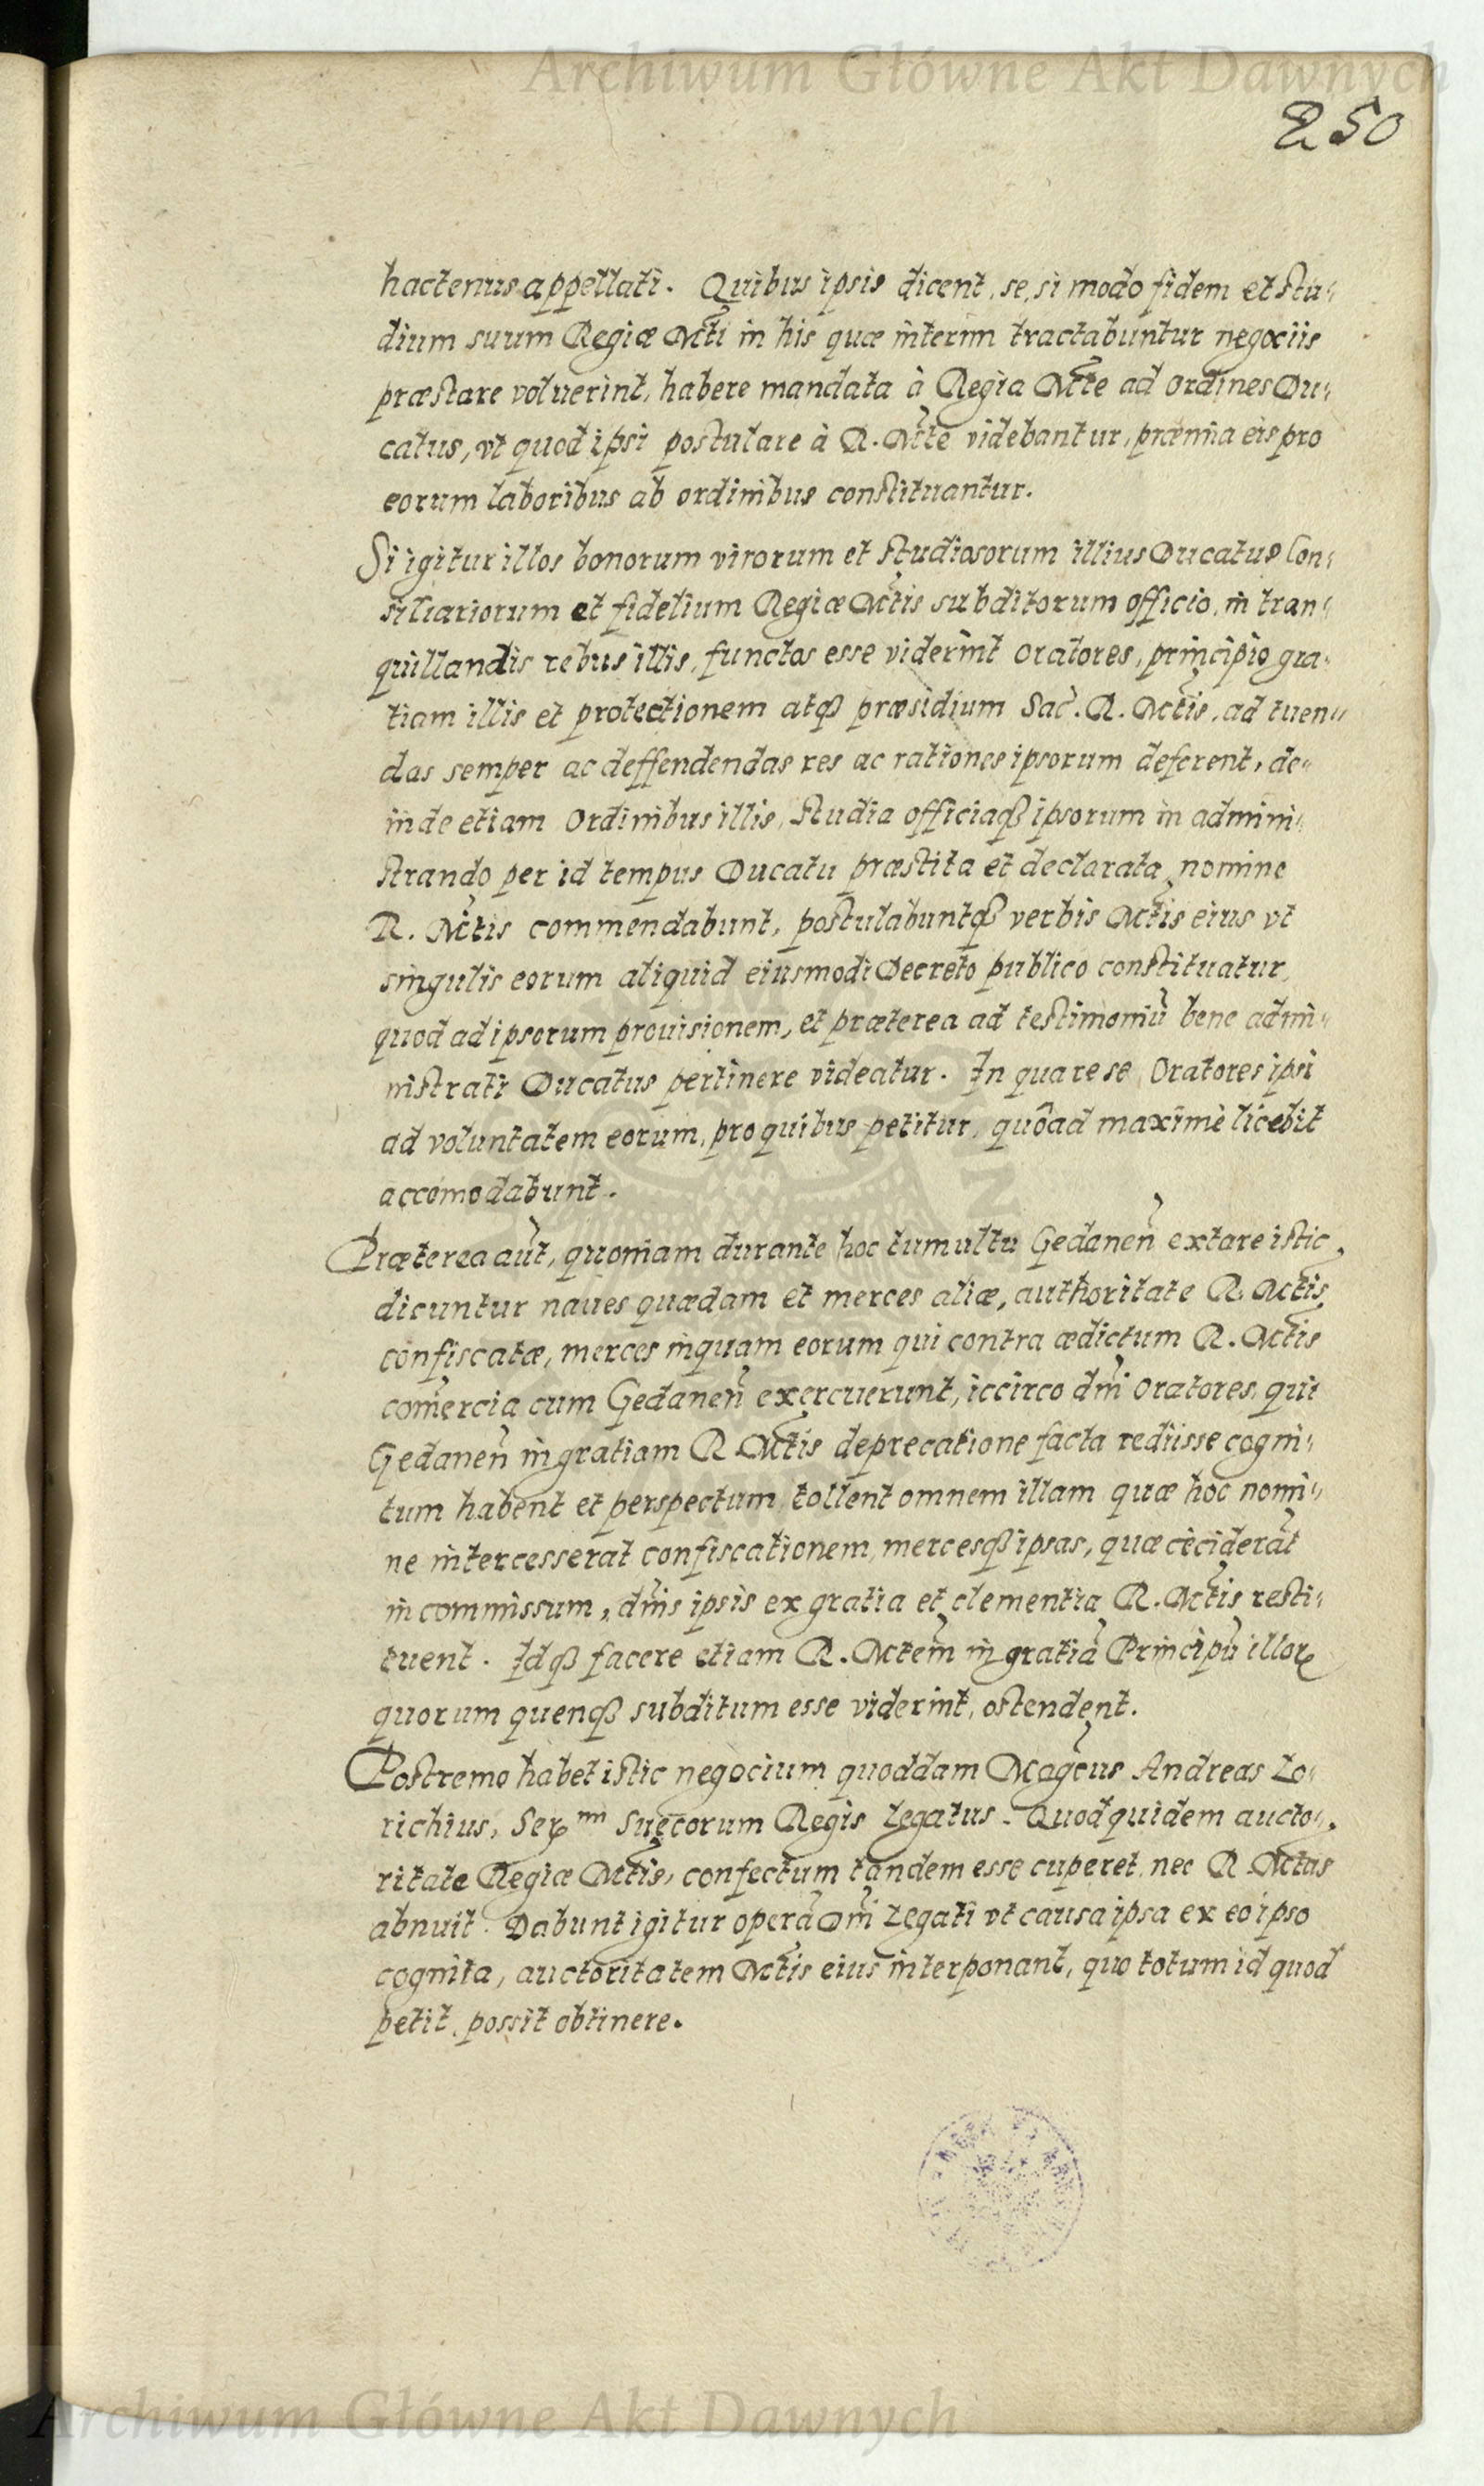 Archiwum Główne Akt Dawnych
250
hactenus appellati. Quibus ipsis dicent, se, si modo fidem et stu„
dium suum Regiæ Mtti in his quæ interim tractabuntur negociis
præstare voluerint, habere mandata à Regia Mtte ad ordines Du„
catus, vt quod ipsi postulare à R. Mtte videbantur, præmia eis pro
eorum laboribus ab ordinibus constituantur.
Si igitur illos bonorum virorum et studiosorum illius Ducatus Con„
siliariorum et fidelium Regiæ Mttis subditorum officio, in tran„
quillandis rebus illis, functos esse viderint oratores, principio gra„
tiam illis et protectionem atqȝ præsidium Sac. R. Mttis, ad tuen„
das semper ac deffendendas res ac rationes ipsorum deferent, de„
inde etiam Ordinibus illis, studia officiaqȝ ipsorum in admini„
strando per id tempus Ducatu præstita et declarata nomine
R. Mttis commendabunt, postulabuntqȝ verbis Mttis eius vt
singulis eorum aliquid eiusmodi Decreto publico constituatur,
quod ad ipsorum prouisionem, et præterea ad testimoniū bene admi„
nistrati Ducatus pertinere videatur. In qua re se Oratores ipsi
ad voluntatem eorum, pro quibus petitur, quoad maximè licebit
accōmodabunt.
Præterea aūt, quoniam durante hoc tumultu Gedaneñ extare istic
dicuntur naues quædam et merces aliæ, authoritate R. Mttis
confiscatæ, merces inquam eorum qui contra ædictum R. Mttis
com̄ercia cum Gedaneñ exercuerunt, iccirco dn̄i Oratores, qui
Gedaneñ in gratiam R. Mttis deprecatione facta rediisse cogni„
tum habent et perspectum, tollent omnem illam quæ hoc nomi„
ne intercesserat confiscationem, mercesqȝ ipsas, quæ ceciderāt
in commissum, dn̄is ipsis ex gratia et clementia R. Mttis resti„
tuent. Idqȝ facere etiam R. Mttem in gratiā Principū illoꝝ
quorum quenqȝ subditum esse viderint, ostendent.
Postremo habet istic negocium quoddam Magcus Andreas Lo„
richius, Serᵐⁱ Suecorum Regis Legatus. Quod quidem aucto„
ritate Regiæ Mttis, confectum tandem esse cuperet, nec R. Mttas
abnuit. Dabunt igitur operā Dn̄i Legati vt causa ipsa ex eo ipso
cognita, auctoritatem Mttis eius interponant, quo totum id quod
petit, possit obtinere.
Archiwum Główne Akt Dawnych